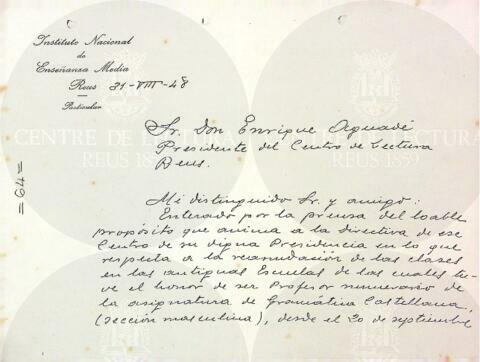 Instituto Nacional
de
Enseñanza Media
Reus 31-VIII-48
Particular
Sr. Don Enrique Aguadé
Presidente del Centro de Lectura
Reus.
=64=
Mi distinguido Sr. y amigo:
Enterado por la prensa del loable
propósito que anima a la directiva de ese
Centro de su digna Presidencia en lo que
respecta a la reanudación de las clases
en las antiguas Escuelas de las cuales tu-
ve el honor de ser Profesor numerario de
la asignatura de Gramática Castellana,
(sección masculina), desde el 20 de septiembre
CENTRE DE LECTURA
REUS 1859
CENTRE DE LECTURA
REUS 1859